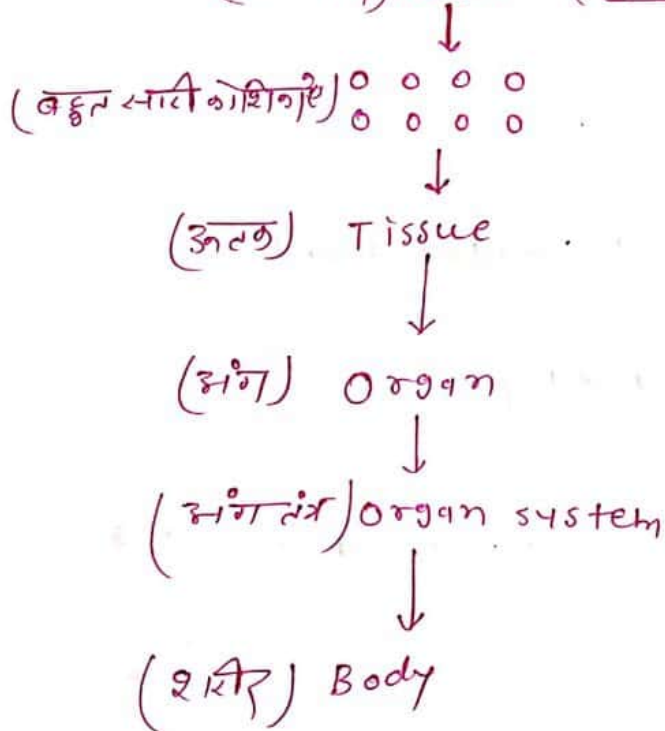 (बहुत सारी कोशिकाएँ)
(ऊतक) Tissue
(अंग) Organ
(अंग तंत्र) Organ system
(शरीर) Body